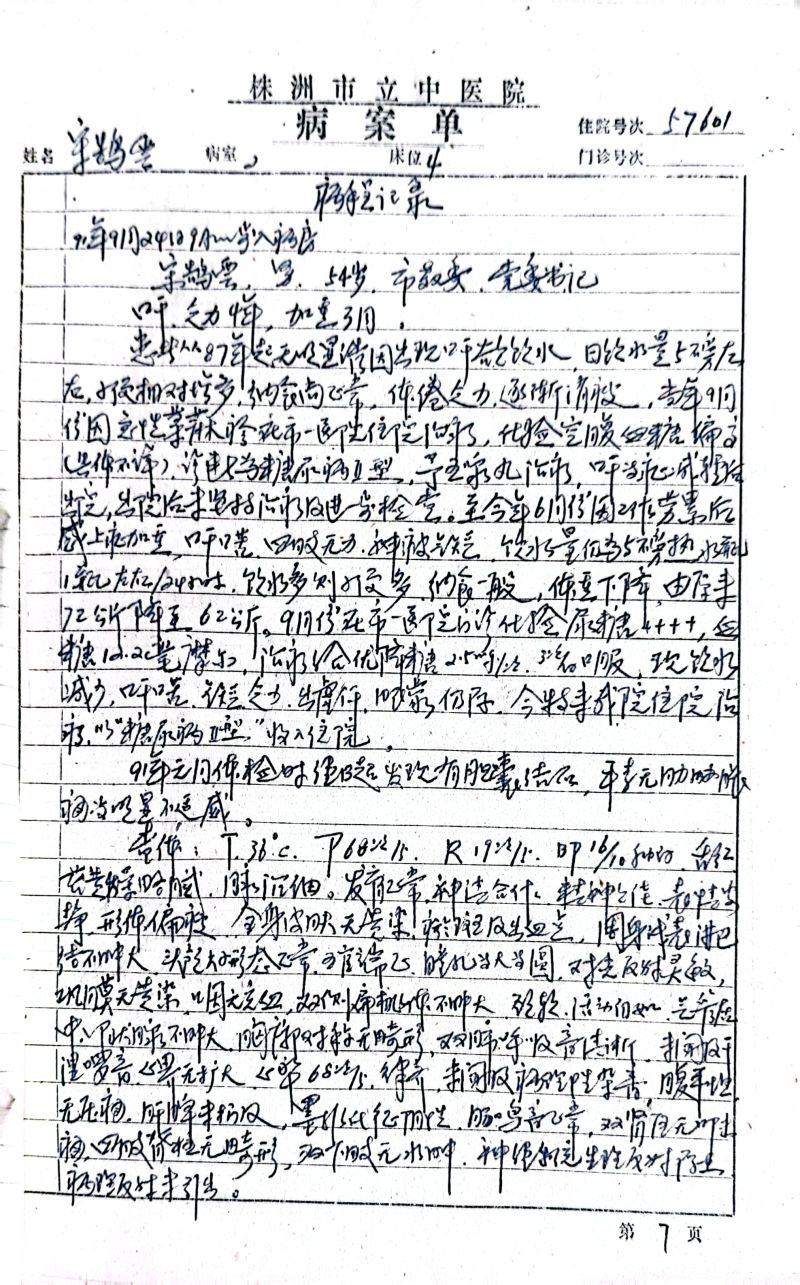 株洲市立中医院
病案单
住院号次 57601
姓名 宋鹄云 病室 2 床位 4 门诊号次
病程记录
91年9月24日9Am步入病房
宋鹄云，男，54岁，市教委，党委书记
口干，乏力4年，加重3月。
患者从87年起无明显诱因出现口干欲饮水，日饮水量5磅左
右，小便相对增多，纳食尚正常，体倦乏力，逐渐消瘦，当年9月
份因急性荨麻疹在市一医院住院治疗，化验空腹血糖偏高
（具体不详），诊断为糖尿病Ⅱ型，予玉泉丸治疗，口干等症减轻后
出院，出院后未坚持治疗及进一步检查。至今年6月份因工作劳累后
感上症加重，口干口苦，四肢无力，神疲气短，饮水量约为5磅热水瓶
1瓶左右/24小时，饮水多则小便多，纳食一般，体重下降，由原来
72公斤降至62公斤。9月份在市一医院门诊化验尿糖++++，血
糖12.2毫摩尔，治疗给优降糖2.5mg/次 3次/日口服，现饮水
减少，口干口苦，气短乏力，出虚汗，仍存，今特来我院住院治
疗，以“糖尿病Ⅱ型”收入住院。
91年元月体检时经B超发现有胆囊结石，平素无胁肋胀
痛等明显不适感。
查体：T 36℃ P 68次/分 R 19次/分 BP 16/10 舌红
苔黄，脉沉细。发育正常，神志合作，精神欠佳，表情安
静，形体偏瘦，全身皮肤无黄染、瘀斑及出血点，周身浅表淋巴
结不肿大，头颅大小形态正常，五官端正，瞳孔等大等圆，对光反射灵敏，
巩膜无黄染，咽无充血，双侧扁桃体不肿大，颈软，活动自如，气管居
中，甲状腺不肿大，胸廓对称无畸形，双肺呼吸音清晰，未闻及干
湿啰音，心界无扩大，心率68次/分，律齐，未闻及病理性杂音，腹平坦，
无压痛，肝脾未扪及，墨菲氏征阴性，肠鸣音正常，双肾区无叩击
痛，四肢脊柱无畸形，双下肢无水肿，神经系统生理反射存在，
病理反射未引出。
第 7 页